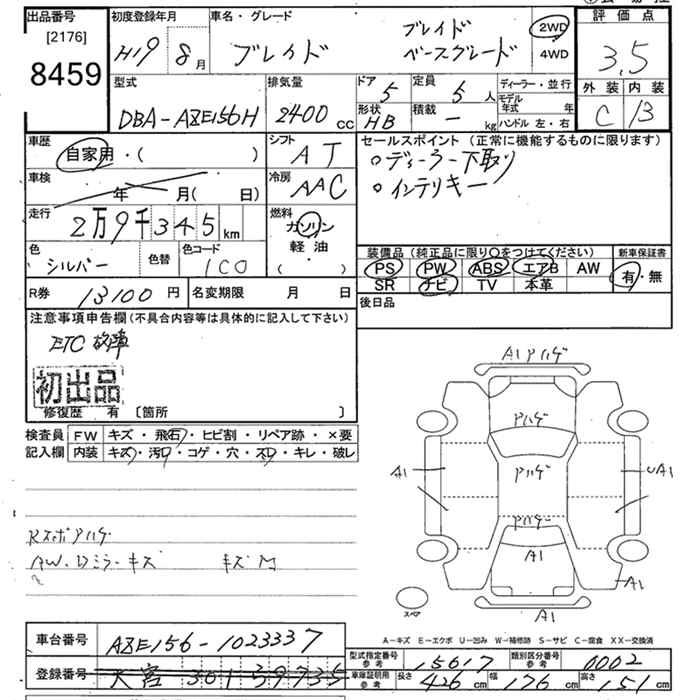 出品番号 初度登録年月 車名・グレード 評価点
[2176] H19 8月 ブレイド ブレイド 2WD 3.5
8459 ベースグレード 4WD
型式 排気量 ドア 5 定員 5人 ディーラー・並行 外装 内装
DBA-AZE156H 2400cc 形状 HB 積載 - kg モデル年式 年 C B
ハンドル 左・右
車歴 シフト セールスポイント (正常に機能するものに限ります)
自家用・( ) AT ○ディーラー下取り
車検 冷房 ○インテリキー
年 月( 日) AAC
走行 燃料
2万9千345km ガソリン
色 色替 色コード 軽油 装備品 (純正品に限り○をつけてください) 新車保証書
シルバー 1C0 ( ・ ) PS PW ABS エアB AW 有・無
R券 13100円 名変期限 月 日 SR ナビ TV 本革
注意事項申告欄(不具合内容等は具体的に記入して下さい) 後日品
ETC故障
初出品
修復歴 有 〔箇所 〕
検査員 FW キズ・飛石・ヒビ割・リペア跡・×要
記入欄 内装 キズ・汚れ・コゲ・穴・スレ・キレ・破レ
A1アハゲ
アハゲ
A1 アハゲ UA1
アハゲ
A1
A1
A1
スペア
Rスポアハゲ
AW・Dミラーキズ
A-キズ E-エクボ U-凹み W-補修跡 S-サビ C-腐食 XX-交換済
車台番号 AZE156-1023337 型式指定番号 参考 15617 類別区分番号 参考 0002
登録番号 大宮 301 車庫証明用 参考 長さ 426cm 幅 176cm 高さ 151cm